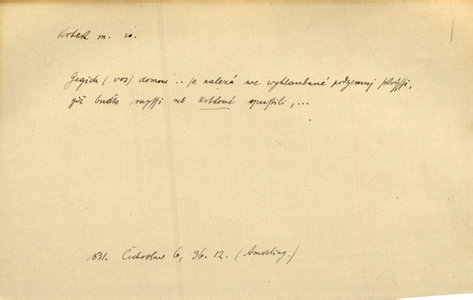 Krtek m. ič.
Gegich (vos) domow .. se nalezá we wyhlaubané podzemnj skrýssi,
giž buďto myssi neb krtkowé opustili, ...
1831. Čechoslaw 6, 36. 12. (Amerling.)